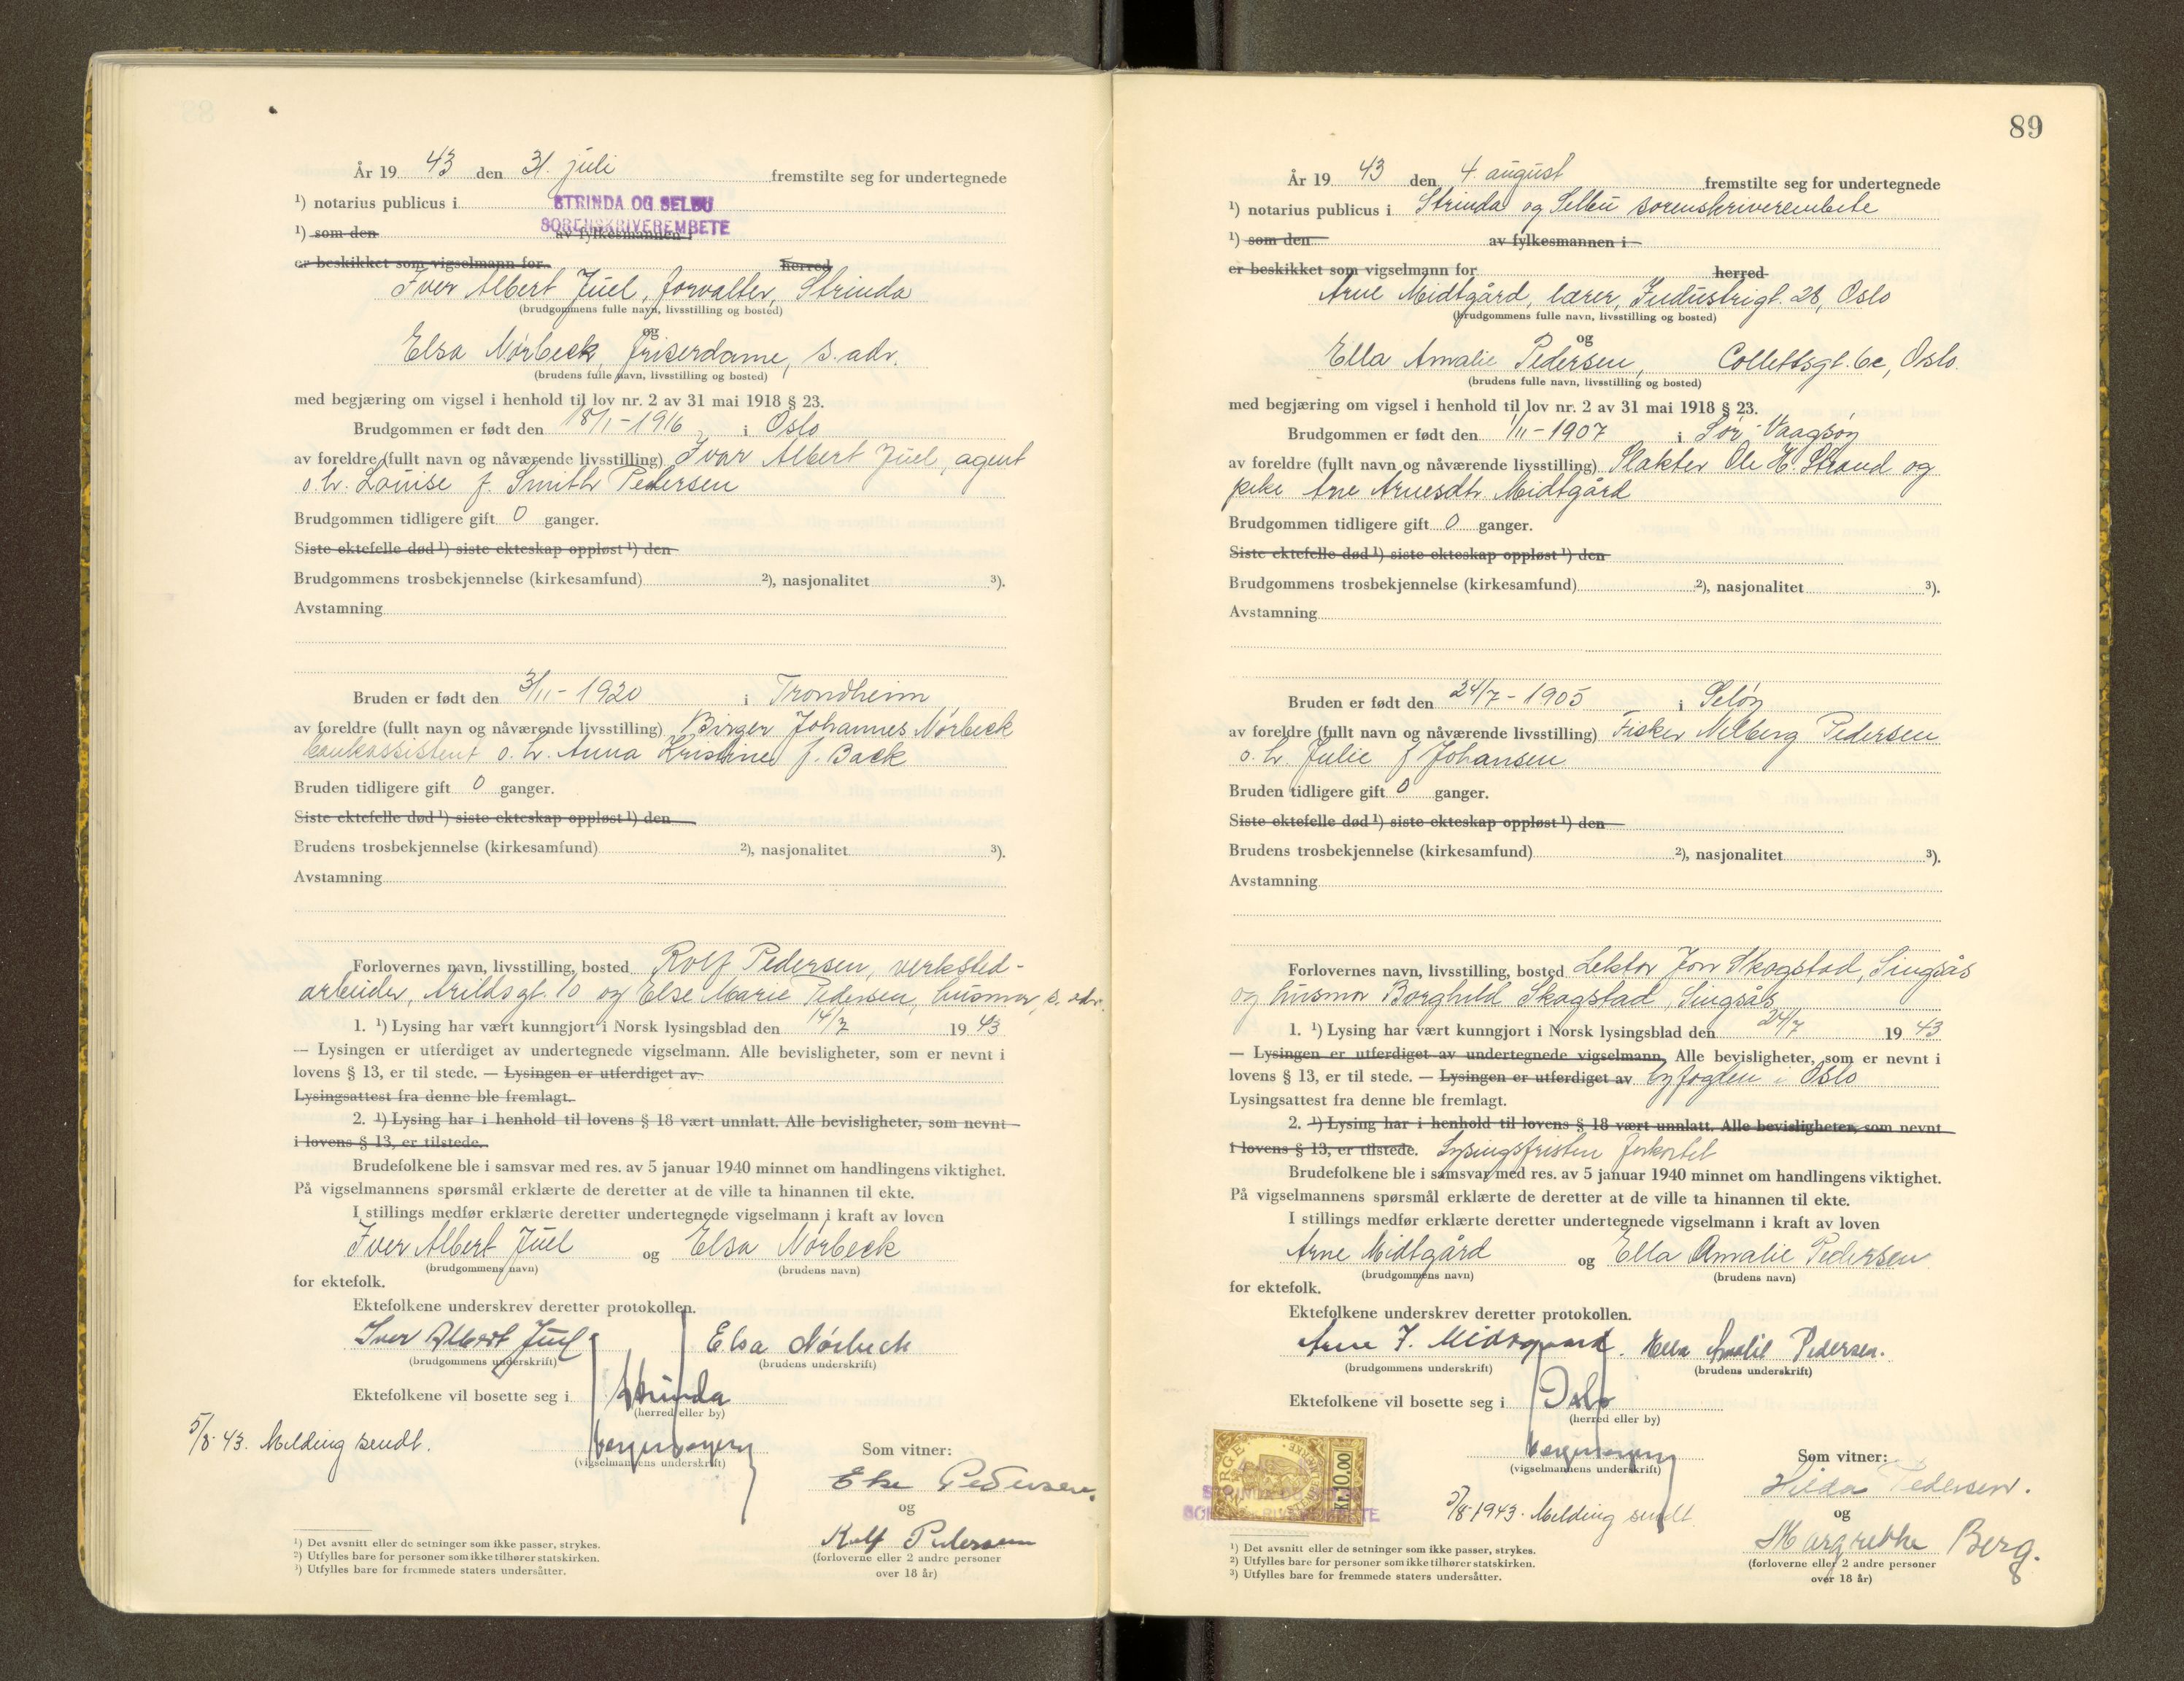 År 19 43 den 31. juli fremstilte seg for undertegnede
¹) notarius publicus i STRINDA OG SELBU
SORENSKRIVEREMBETE
¹) som den av fylkesmannen i
er beskikket som vigselmann for herred
Iver Albert Juel, forvalter, Strinda
(brudgommens fulle navn, livsstilling og bosted)
og
Elsa Nørbeck, friserdame, s. adr.
(brudens fulle navn, livsstilling og bosted)
med begjæring om vigsel i henhold til lov nr. 2 av 31 mai 1918 § 23.
Brudgommen er født den 18/1-1916 i Oslo
av foreldre (fullt navn og nåværende livsstilling) Ivar Albert Juel, agent
o.h. Louise f. Smith Pedersen
Brudgommen tidligere gift 0 ganger.
Siste ektefelle død ¹) siste ekteskap oppløst ¹) den
Brudgommens trosbekjennelse (kirkesamfund) ²), nasjonalitet ³).
Avstamning
Bruden er født den 3/11-1920 i Trondheim
av foreldre (fullt navn og nåværende livsstilling) Birger Johannes Nørbeck
bankassistent o.h. Anna Kristine f. Back
Bruden tidligere gift 0 ganger.
Siste ektefelle død ¹) siste ekteskap oppløst ¹) den
Brudens trosbekjennelse (kirkesamfund) ²), nasjonalitet ³).
Avstamning
Forlovernes navn, livsstilling, bosted Rolf Pedersen, verksted-
arbeider, Arilds gt. 10 og Else Marie Pedersen, husmor, s. adr.
1. ¹) Lysing har vært kunngjort i Norsk lysingsblad den 14/7 19 43
— Lysingen er utferdiget av undertegnede vigselmann. Alle bevisligheter, som er nevnt i
lovens § 13, er til stede. — Lysingen er utferdiget av
Lysingsattest fra denne ble fremlagt.
2. ¹) Lysing har i henhold til lovens § 18 vært unnlatt. Alle bevisligheter, som nevnt
i lovens § 13, er tilstede.
Brudefolkene ble i samsvar med res. av 5 januar 1940 minnet om handlingens viktighet.
På vigselmannens spørsmål erklærte de deretter at de ville ta hinannen til ekte.
I stillings medfør erklærte deretter undertegnede vigselmann i kraft av loven
Iver Albert Juel og Elsa Nørbeck
(brudgommens navn) (brudens navn)
for ektefolk.
Ektefolkene underskrev deretter protokollen.
Iver Albert Juel Elsa Nørbeck
(brudgommens underskrift) (brudens underskrift)
Ektefolkene vil bosette seg i Strinda
(herred eller by)
5/8-43. Melding sendt.
(vigselmannens underskrift)
Som vitner:
Else Pedersen.
og
Rolf Pedersen
(forloverne eller 2 andre personer
over 18 år)
¹) Det avsnitt eller de setninger som ikke passer, strykes.
²) Utfylles bare for personer som ikke tilhører statskirken.
³) Utfylles bare for fremmede staters undersåtter.
89
År 19 43 den 4. august fremstilte seg for undertegnede
¹) notarius publicus i Strinda og Selbu sorenskriverembete
¹) som den av fylkesmannen i
er beskikket som vigselmann for herred
Arne Midtgård, lærer, Industrigt. 28, Oslo
(brudgommens fulle navn, livsstilling og bosted)
og
Ella Amalie Pedersen, Collettsgt. 6c, Oslo.
(brudens fulle navn, livsstilling og bosted)
med begjæring om vigsel i henhold til lov nr. 2 av 31 mai 1918 § 23.
Brudgommen er født den 1/11-1907 i Sør-Vaagsøy
av foreldre (fullt navn og nåværende livsstilling) Slakter Ole H. Strand og
pike Ane Arnesdtr. Midtgård
Brudgommen tidligere gift 0 ganger.
Siste ektefelle død ¹) siste ekteskap oppløst ¹) den
Brudgommens trosbekjennelse (kirkesamfund) ²), nasjonalitet ³).
Avstamning
Bruden er født den 24/7-1905 i Seløy
av foreldre (fullt navn og nåværende livsstilling) Fisker Melberg Pedersen
o.h. Julie f Johansen
Bruden tidligere gift 0 ganger.
Siste ektefelle død ¹) siste ekteskap oppløst ¹) den
Brudens trosbekjennelse (kirkesamfund) ²), nasjonalitet ³).
Avstamning
Forlovernes navn, livsstilling, bosted Lektor Jon Skogstad, Singsås
og husmor Borghild Skogstad, Singsås
1. ¹) Lysing har vært kunngjort i Norsk lysingsblad den 24/7 19 43
— Lysingen er utferdiget av undertegnede vigselmann. Alle bevisligheter, som er nevnt i
lovens § 13, er til stede. — Lysingen er utferdiget av byfogden i Oslo
Lysingsattest fra denne ble fremlagt.
2. ¹) Lysing har i henhold til lovens § 18 vært unnlatt. Alle bevisligheter, som nevnt
i lovens § 13, er tilstede. Lysingsfristen forkortet
Brudefolkene ble i samsvar med res. av 5 januar 1940 minnet om handlingens viktighet.
På vigselmannens spørsmål erklærte de deretter at de ville ta hinannen til ekte.
I stillings medfør erklærte deretter undertegnede vigselmann i kraft av loven
Arne Midtgård og Ella Amalie Pedersen
(brudgommens navn) (brudens navn)
for ektefolk.
Ektefolkene underskrev deretter protokollen.
Arne J. Midtgaard. Ella Amalie Pedersen.
(brudgommens underskrift) (brudens underskrift)
Ektefolkene vil bosette seg i Oslo
(herred eller by)
(vigselmannens underskrift)
NORGE Kr 10.00
STRINDA OG SELBU
SORENSKRIVEREMBETE
5/8-1943. Melding sendt.
Som vitner:
Hilda Pedersen.
og
Margrethe Berg.
(forloverne eller 2 andre personer
over 18 år)
¹) Det avsnitt eller de setninger som ikke passer, strykes.
²) Utfylles bare for personer som ikke tilhører statskirken.
³) Utfylles bare for fremmede staters undersåtter.